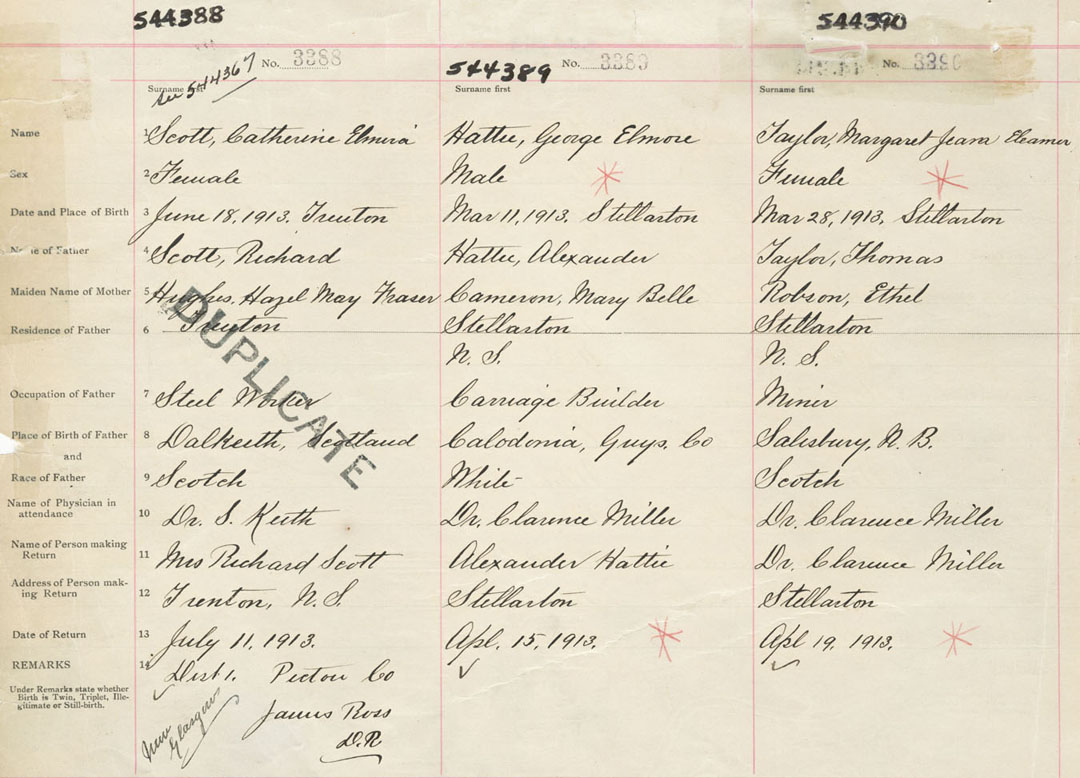 544388
544390
No. 3388
544389
No. 3389
No. 3390
see 544367
Surname first
Surname first
Surname first
Name
1 Scott, Catherine Elmira
Hattie, George Elmore
Taylor, Margaret Jeana Eleamer
Sex
2 Female
Male
Female
Date and Place of Birth
3 June 18, 1913. Trenton
Mar 11, 1913. Stellarton
Mar 28, 1913. Stellarton
Name of Father
4 Scott, Richard
Hattie, Alexander
Taylor, Thomas
Maiden Name of Mother
5 Hughes, Hazel May Fraser
Cameron, Mary Belle
Robson, Ethel
Residence of Father
6 Trenton
Stellarton
Stellarton
N. S.
N. S.
DUPLICATE
Occupation of Father
7 Steel Worker
Carriage Builder
Miner
Place of Birth of Father
8 Dalkeith, Scotland
Calodonia, Guys. Co
Salisbury, N. B.
and
Race of Father
9 Scotch
White
Scotch
Name of Physician in
attendance
10 Dr. S. Keith
Dr. Clarence Miller
Dr. Clarence Miller
Name of Person making
Return
11 Mrs Richard Scott
Alexander Hattie
Dr. Clarence Miller
Address of Person mak-
ing Return
12 Trenton, N.S.
Stellarton
Stellarton
Date of Return
13 July 11, 1913.
Apl. 15, 1913.
Apl 19, 1913.
REMARKS
14 Dist 1. Pictou Co
Under Remarks state whether
Birth is Twin, Triplet, Ille-
gitimate or Still-birth.
New
Glasgow
James Ross
D.R